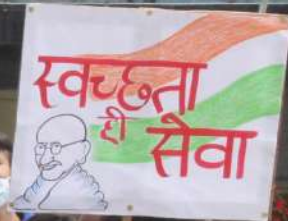 स्वच्छता
ही
सेवा